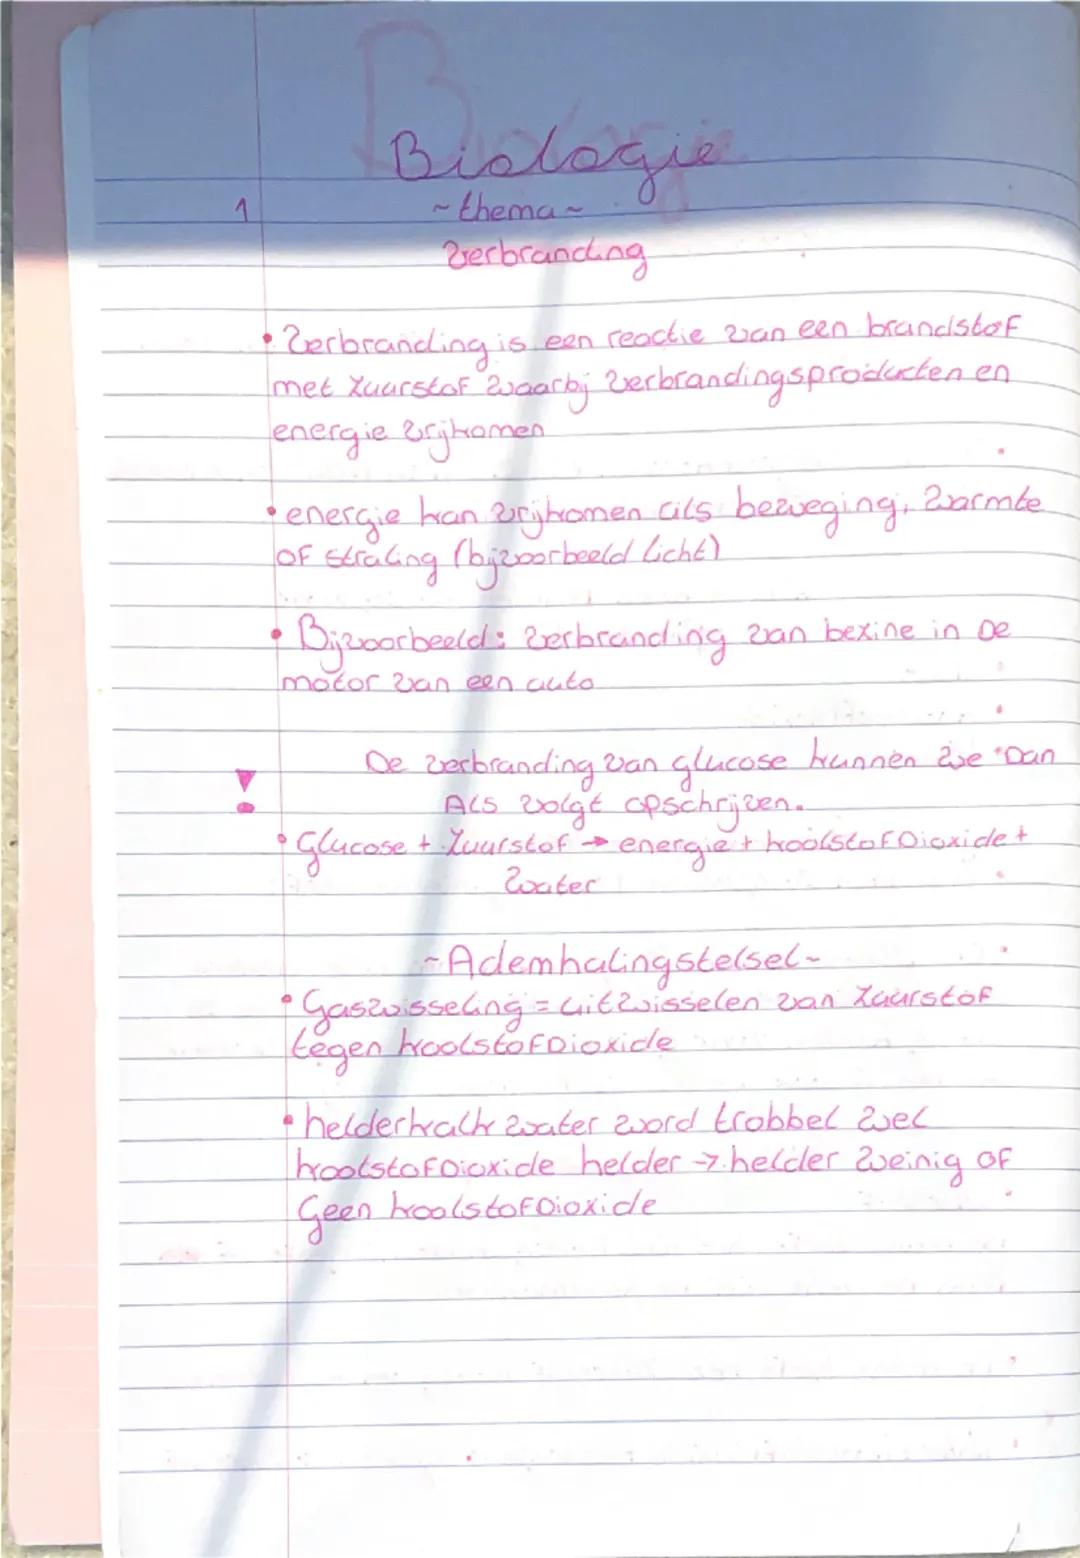 Biologie
1 ~thema~
Verbranding
• Verbranding is een reactie van een brandstof
met zuurstof waarbij verbrandingsproducten en
energie vrijkomen
• energie kan vrijkomen als beweging, warmte
of straling (bijvoorbeeld licht)
• Bijvoorbeeld: verbranding van bezine in De
motor van een auto
De verbranding van glucose kunnen we Dan
Als volgt opschrijven.
• Glucose + Zuurstof → energie + koolstofDioxide +
water
~Ademhalingstelsel~
• Gaswisseling = uitwisselen van Zuurstof
tegen koolstofDioxide
• helderkalk water word trobbel wel
koolstofDioxide helder → helder weinig of
Geen koolstofDioxide